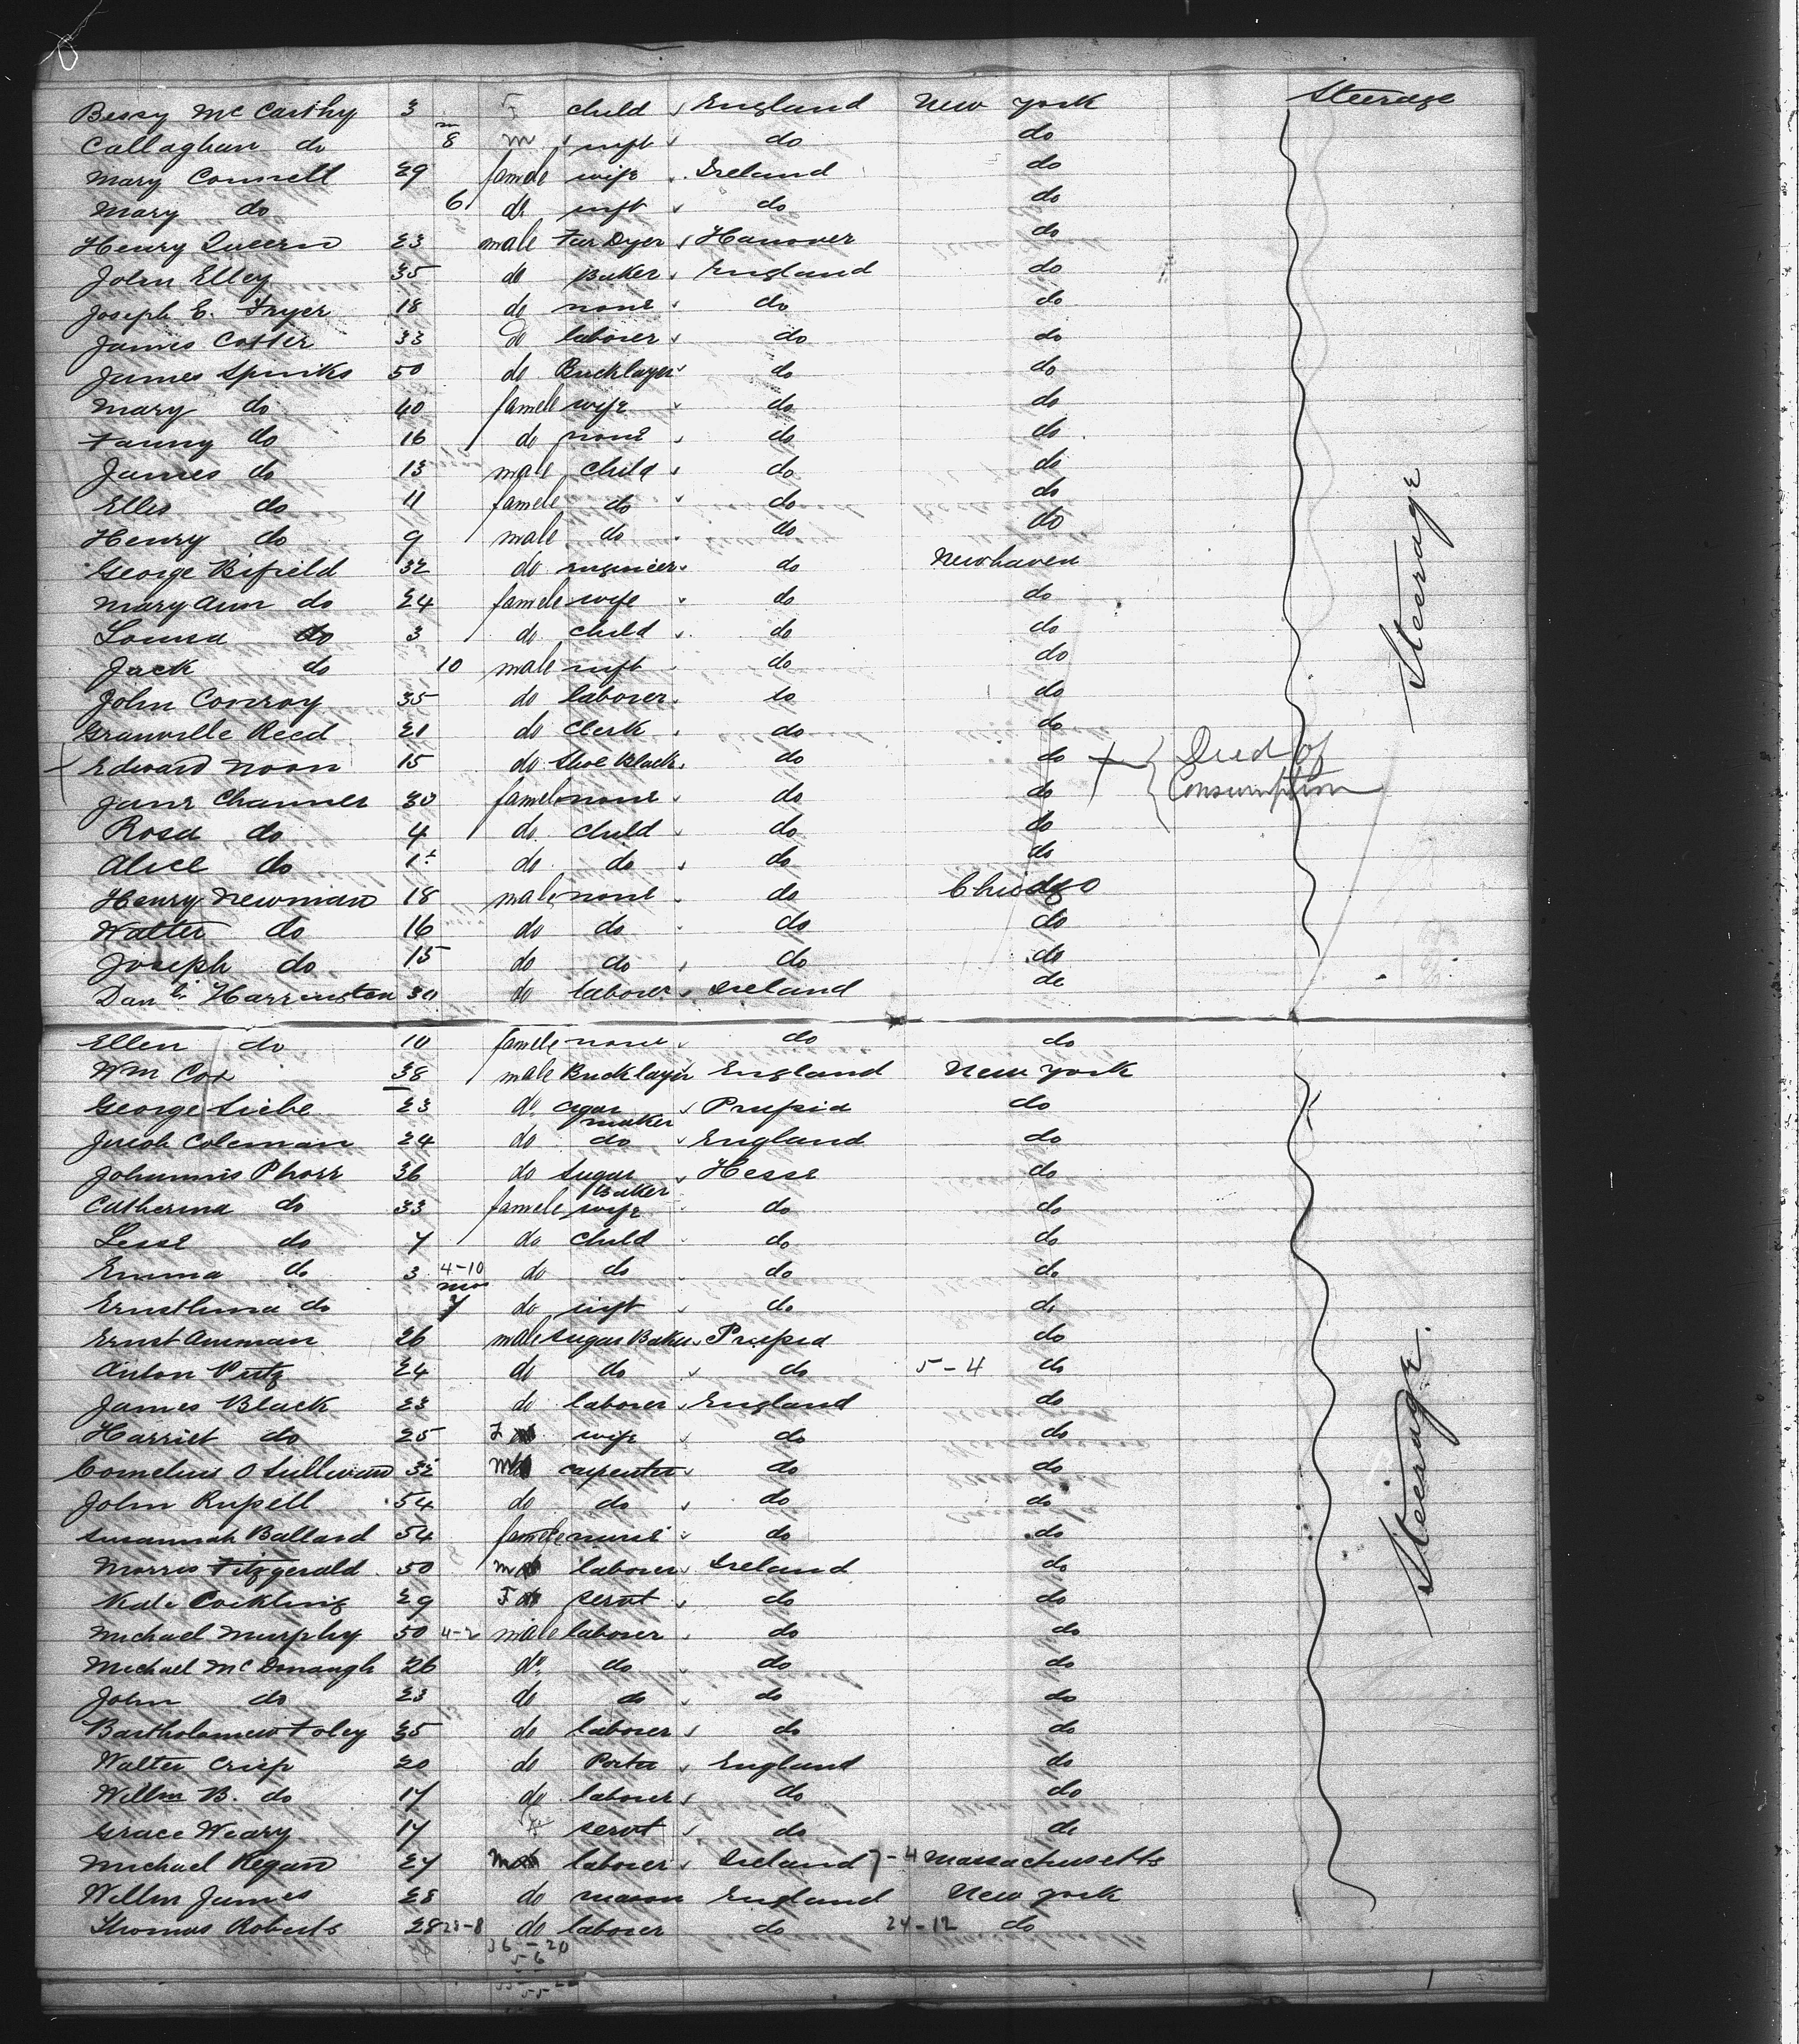 Bessy McCarthy 3 F child England New York Steerage
Callaghan do 8 m inft do do
Mary Connell 29 famele wife Ireland do
Mary do 6 do inft do do
Henry 23 male Fur Dyer Hanover do
John Elley 35 do Baker England do
Joseph E. Fryer 18 do none do do
James Cotter 33 do laborer do do
James Spinks 50 do Bricklayer do do
Mary do 40 famele wife do do
Fanny do 16 do none do do
James do 13 male child do do
Ellis do 11 famele do do do
Henry do 9 male do do do
George Bifield 32 do engineer do Newhaven
Mary Ann do 24 famele wife do do
Louisa do 3 do child do do
Jack do 10 male inft do do
John Conroy 35 do laborer do do
Granville Reed 21 do Clerk do do
+ Edward Noon 15 do Shoe Black do do + Died of
Jane Channer 30 famele none do do Consumption
Rosa do 4 do child do do
Alice do 1 do do do do
Henry Newman 18 male none do Chicago
Walter do 16 do do do do
Joseph do 15 do do do do
Danl Harrington 30 do laborer Ireland do
Steerage
Ellen do 10 famele none do do
Wm Cox 38 male Bricklayer England New York
George Siebe 23 do cigar maker Prussia do
Coleman 24 do do England do
Johannis Phorr 36 do Sugar Baker Hesse do
Catherina do 33 famele wife do do
do 7 do child do do
Emma do 3 4-10 do do do do
Ernsthina do mos 7 do inft do do
Ernst Amman 26 male Sugar Baker Prussia do
Anton Putz 24 do do do 5-4 do
James Black 23 do laborer England do
Harriet do 25 F wife do do
Cornelius O Sullivan 32 M carpenter do do
John Russell 54 do do do do
Susannah Ballard 54 famele nurse do do
Morris Fitzgerald 50 m laborer Ireland do
Kate 29 F servt do do
Michael Murphy 50 4-2 male laborer do do
Michael McDonaugh 26 do do do do
John do 23 do do do do
Bartholomew Foley 35 do laborer do do
Walter Crisp 20 do Porter England do
Willm B. do 17 do laborer do do
Grace Weary 17 servt do do
Michael Regan 27 M laborer Ireland 7-4 Massachusetts
Willm James 28 do mason England New York
Thomas Roberts 28 28-8 do laborer do 24-12 do
36-20
56
55
Steerage